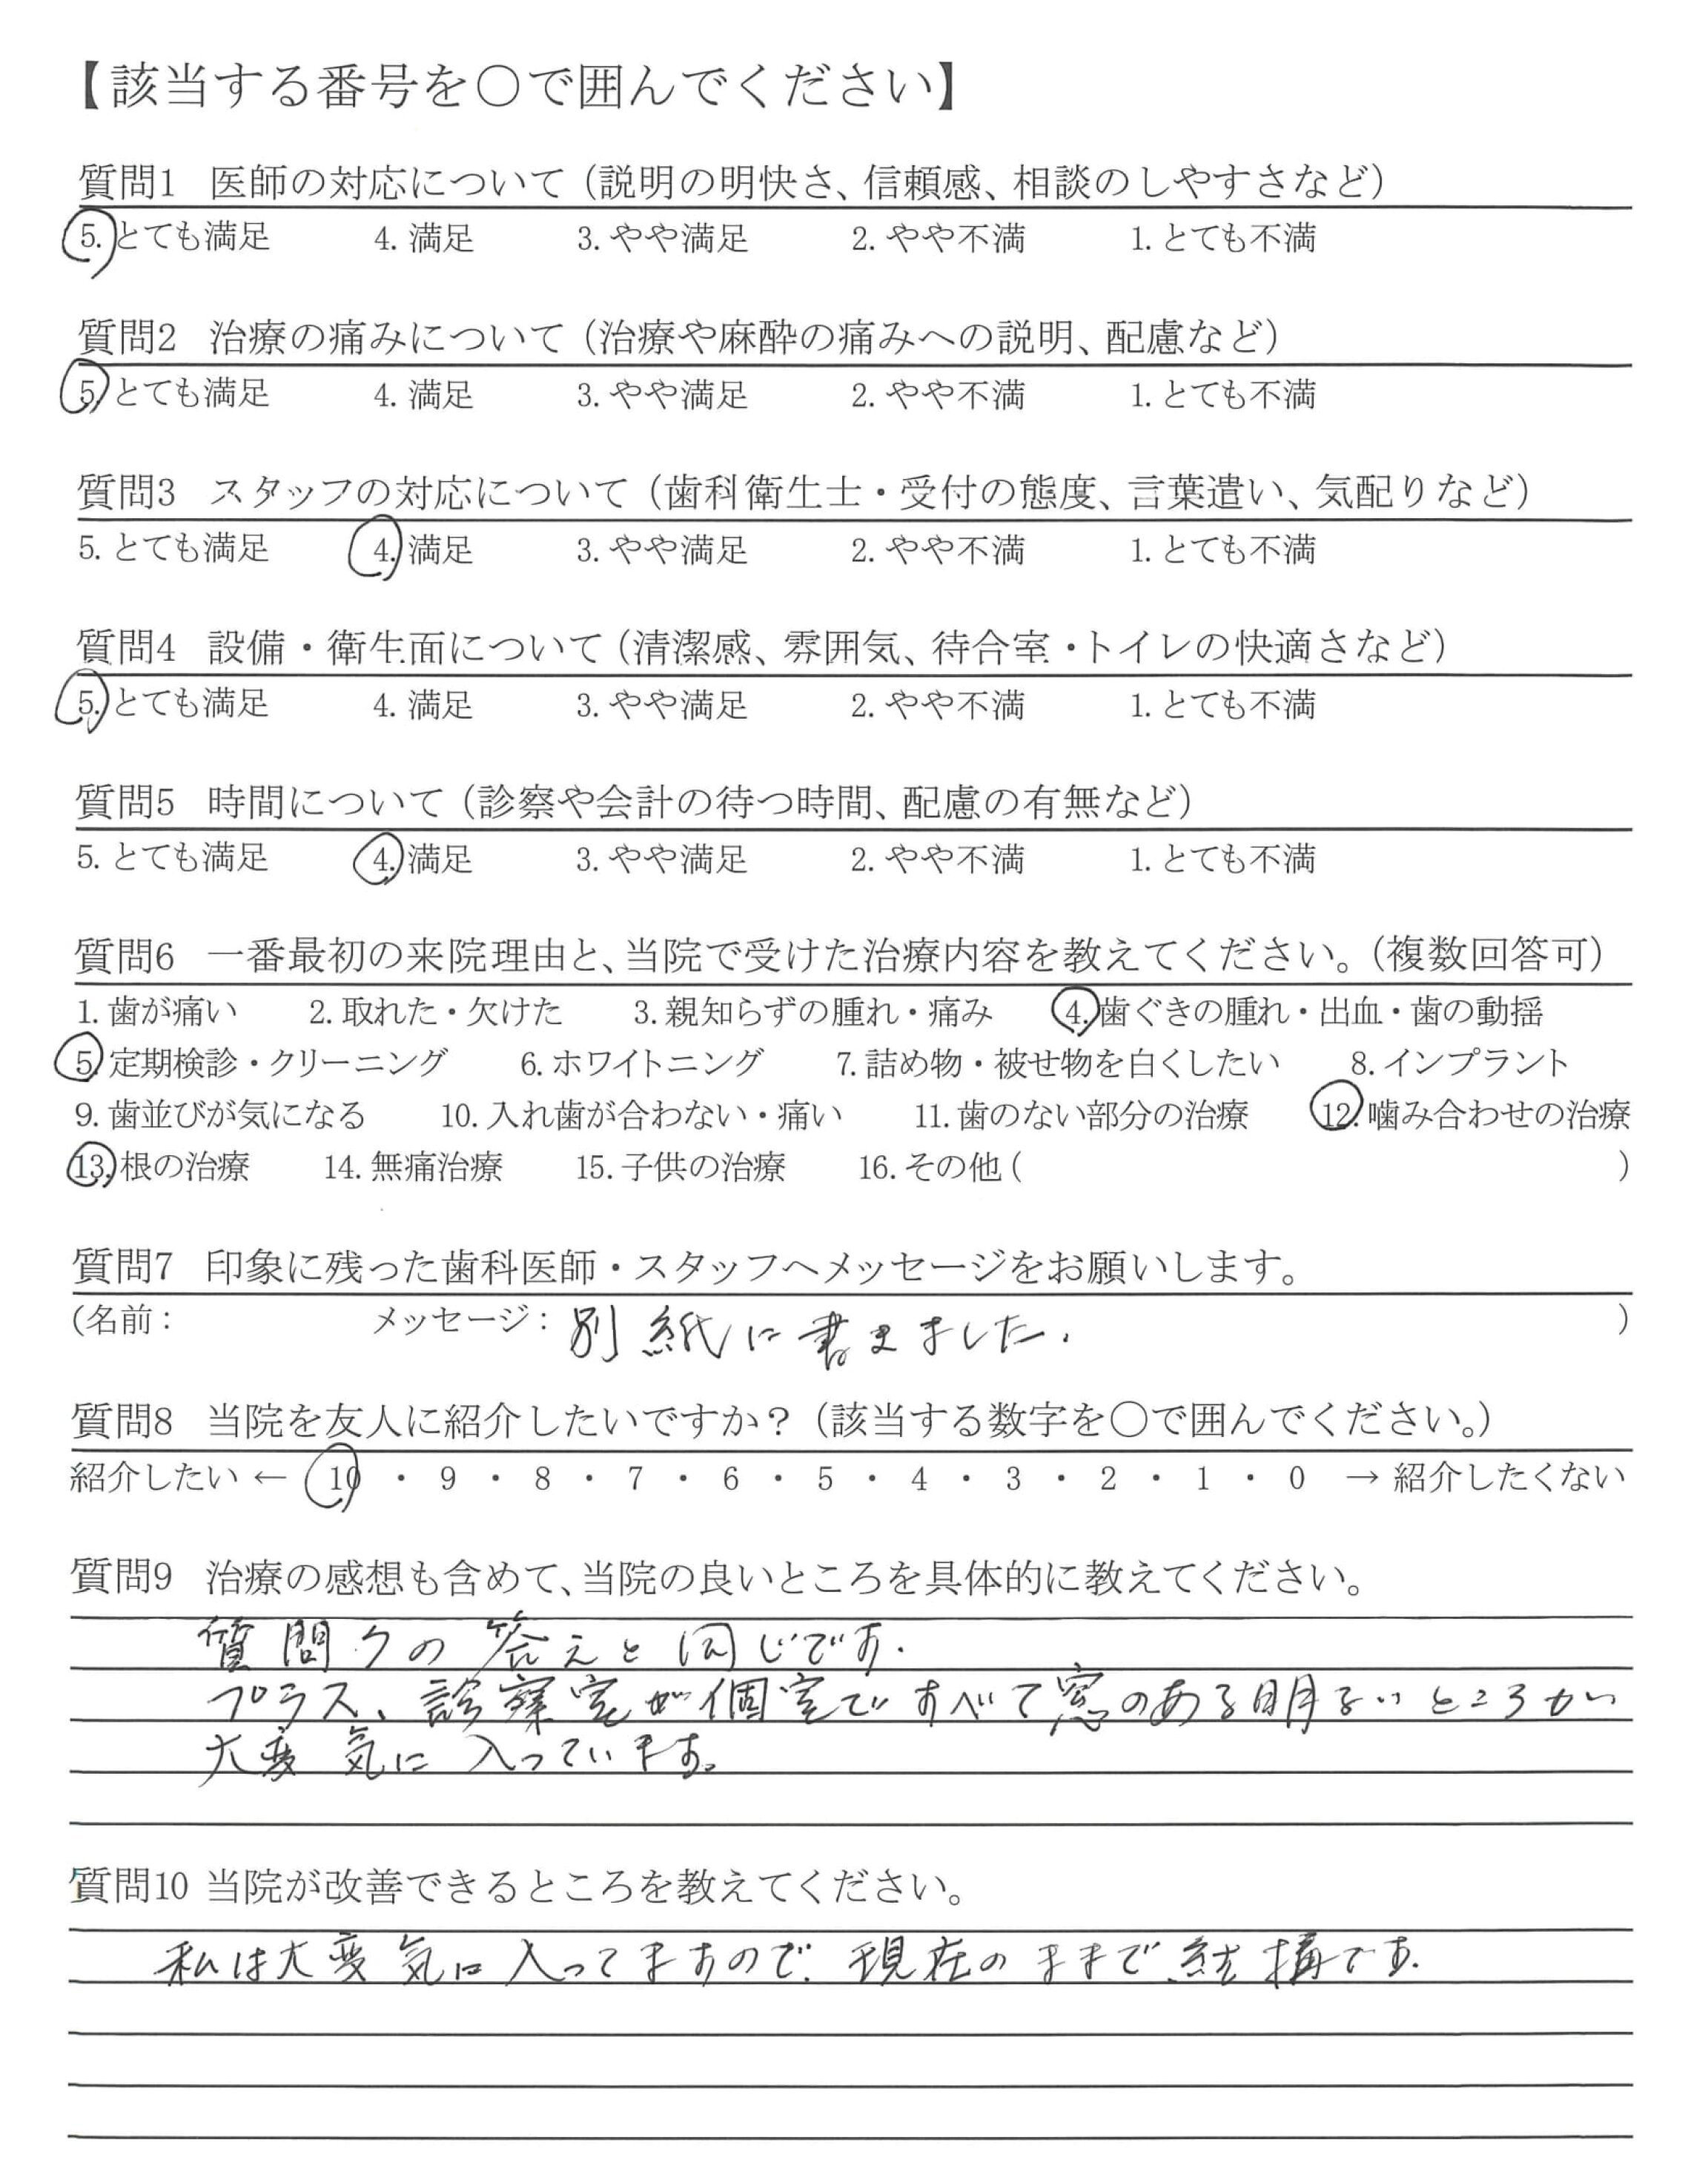 【該当する番号を〇で囲んでください】
質問1 医師の対応について（説明の明快さ、信頼感、相談のしやすさなど）
5. とても満足 4. 満足 3. やや満足 2. やや不満 1. とても不満
質問2 治療の痛みについて（治療や麻酔の痛みへの説明、配慮など）
5. とても満足 4. 満足 3. やや満足 2. やや不満 1. とても不満
質問3 スタッフの対応について（歯科衛生士・受付の態度、言葉遣い、気配りなど）
5. とても満足 4. 満足 3. やや満足 2. やや不満 1. とても不満
質問4 設備・衛生面について（清潔感、雰囲気、待合室・トイレの快適さなど）
5. とても満足 4. 満足 3. やや満足 2. やや不満 1. とても不満
質問5 時間について（診察や会計の待つ時間、配慮の有無など）
5. とても満足 4. 満足 3. やや満足 2. やや不満 1. とても不満
質問6 一番最初の来院理由と、当院で受けた治療内容を教えてください。（複数回答可）
1. 歯が痛い 2. 取れた・欠けた 3. 親知らずの腫れ・痛み 4. 歯ぐきの腫れ・出血・歯の動揺
5. 定期検診・クリーニング 6. ホワイトニング 7. 詰め物・被せ物を白くしたい 8. インプラント
9. 歯並びが気になる 10. 入れ歯が合わない・痛い 11. 歯のない部分の治療 12. 噛み合わせの治療
13. 根の治療 14. 無痛治療 15. 子供の治療 16. その他 ( )
質問7 印象に残った歯科医師・スタッフへメッセージをお願いします。
(名前： メッセージ： 別紙に書きました. )
質問8 当院を友人に紹介したいですか？（該当する数字を〇で囲んでください。）
紹介したい ← 10 ・ 9 ・ 8 ・ 7 ・ 6 ・ 5 ・ 4 ・ 3 ・ 2 ・ 1 ・ 0 → 紹介したくない
質問9 治療の感想も含めて、当院の良いところを具体的に教えてください。
質問7の答えと同じです.
プラス、診察室が個室ですべて窓のある明るいところが
大変気に入っています。
質問10 当院が改善できるところを教えてください。
私は大変気に入ってますので、現在のままで結構です.